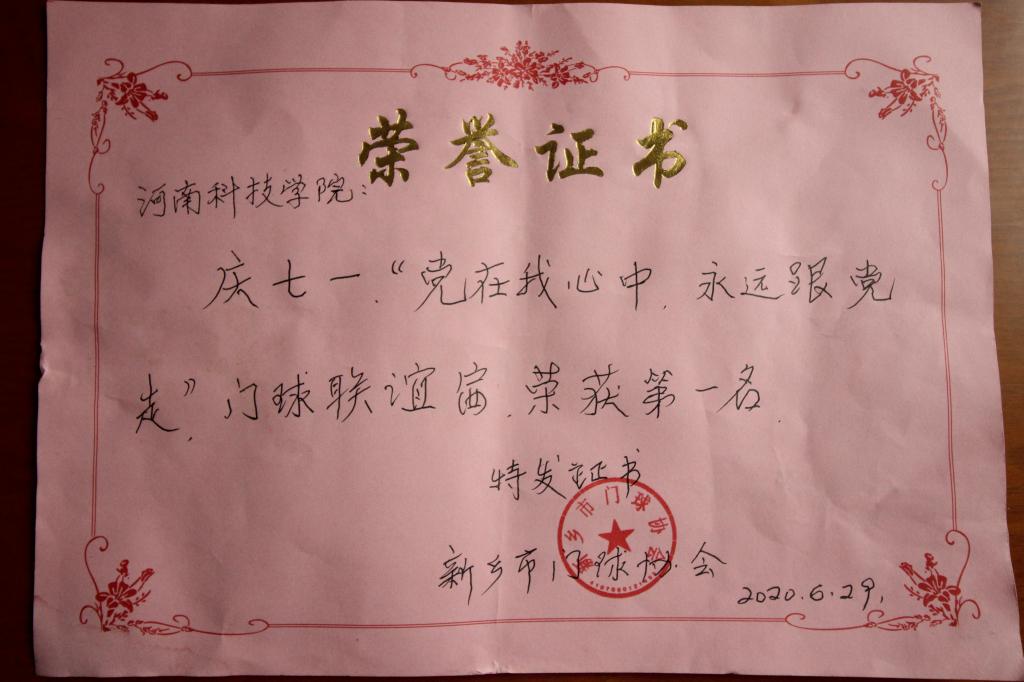 荣誉证书
河南科技学院：
庆七一.“党在我心中.永远跟党
走”门球联谊赛.荣获第一名.
特发证书
新乡市门球协会
新乡市门球协会
2020.6.29.